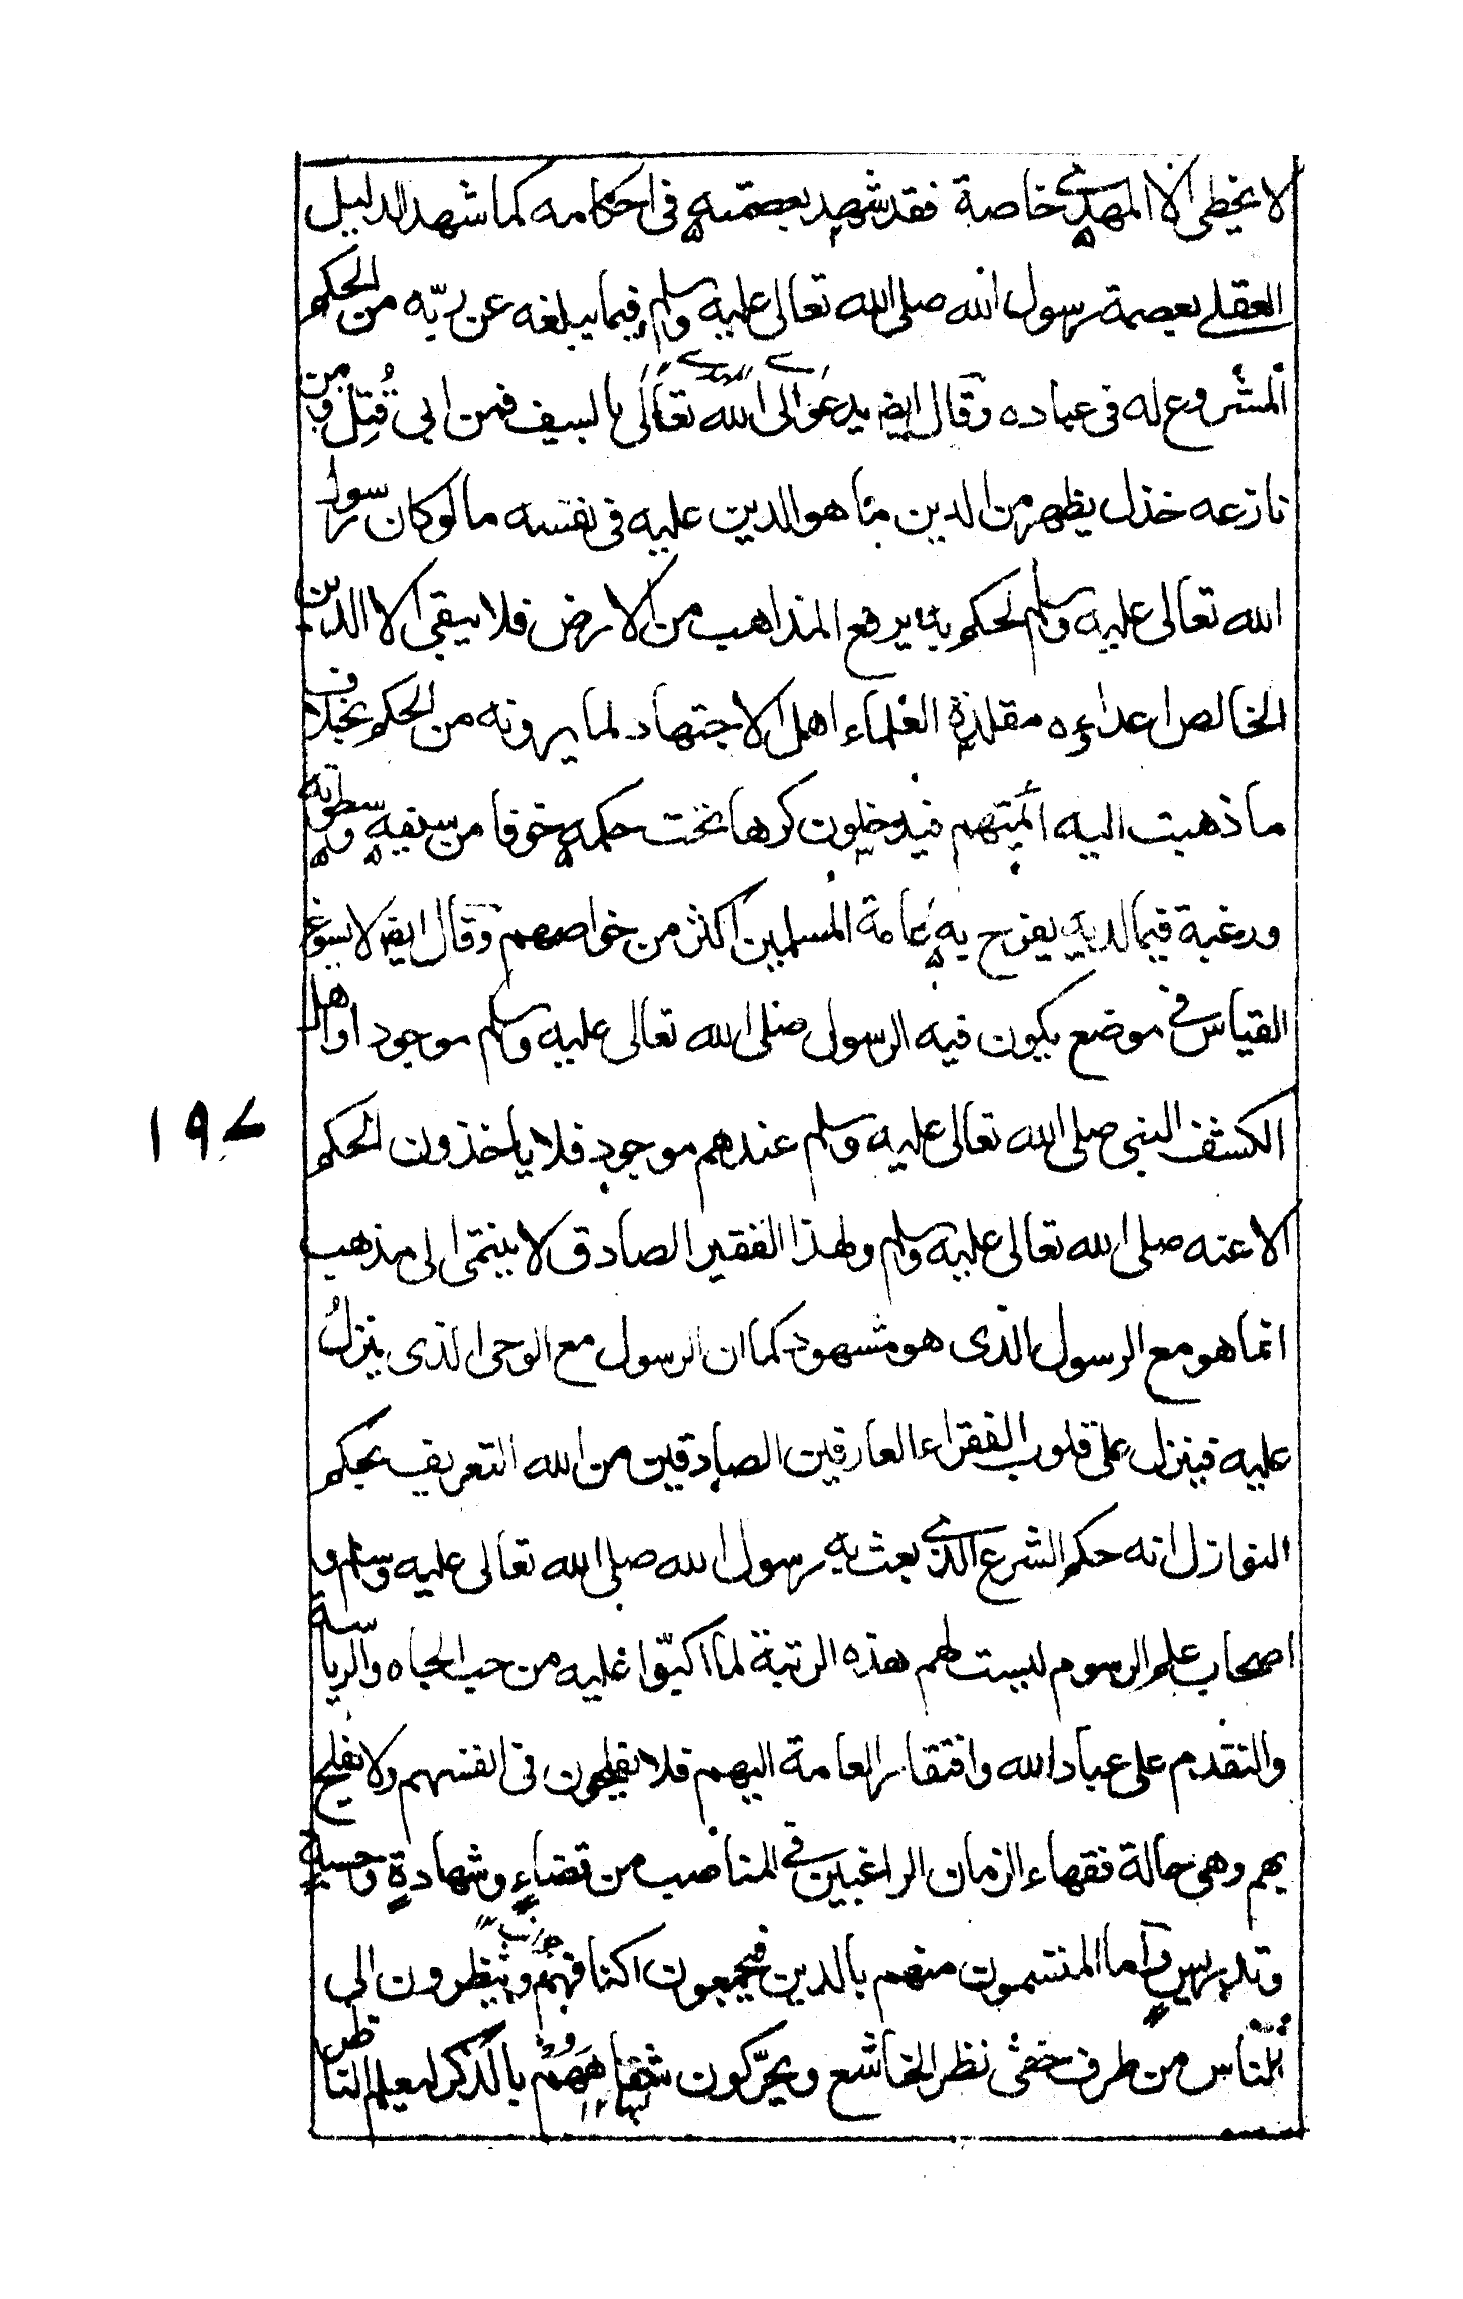 لا يخطى الا المهدي خاصة فقد شهد بعصمته في احكامه كما شهد الدليل
العقلے بعصمة رسول الله صلى الله تعالى عليه وسلم فيما يبلغه عن ربّه من الحكم
المشروع له فى عباده وقال ايضا يدعوا الى الله تعالى بالسيف فمن ابى قُتِل ومن
نازعه خذل يظهر من الدين ما هو الدين عليه فى نفسه ما لو كان رسول
الله تعالى عليه وسلم لحكم به يرفع المذاهب من الارض فلا يبقى الا الدين
الخالص اعداءه مقلدة العلماء اهل الاجتهاد لما يرونه من الحكم بخلاف
ما ذهبت اليه ائمتهم فيدخلون كرها تحت حكمه خوفا من سيفه وسطوته
ورغبة فيما لديه يفرح به عامة المسلمين اكثر من خواصهم وقال ايضا لا يسوغ
القياس في موضع يكون فيه الرسول صلى الله تعالى عليه وسلم موجود او اهل
الكشف النبى صلى الله تعالى عليه وسلم عندهم موجود فلا يأخذون الحكم
الا عنه صلى الله تعالى عليه وسلم ولهذا الفقير الصادق لا ينتمى الى مذهب
انما هو مع الرسول الذى هو مشهود كما ان الرسول مع الوحى الذى ينزلُ
عليه فينزل على قلوب الفقراء العارفين الصادقين من الله التعريف بحكم
النوازل انه حكم الشرع الذي بعث به رسول الله صلى الله تعالى عليه وسلم و
اصحاب علم الرسوم ليست لهم هذه الرتبة لما اكبّوا عليه من حب الجاه والرياسة
والتقدم على عباد الله وافتقار العامة اليهم فلا يفلحون فى انفسهم ولا يفلح
بهم وهى حالة فقهاء الزمان الراغبين في المناصب من قضاءٍ وشهادةٍ وحسبةٍ
وتدريسٍ واما المنتسمون منهم بالدين فيجمعون اكنافهم وينظرون الى
الناس من طرف خفى نظر الخاشع ويحرّكون شفاههم بالذكر ليعلم الناظر
١٩٧